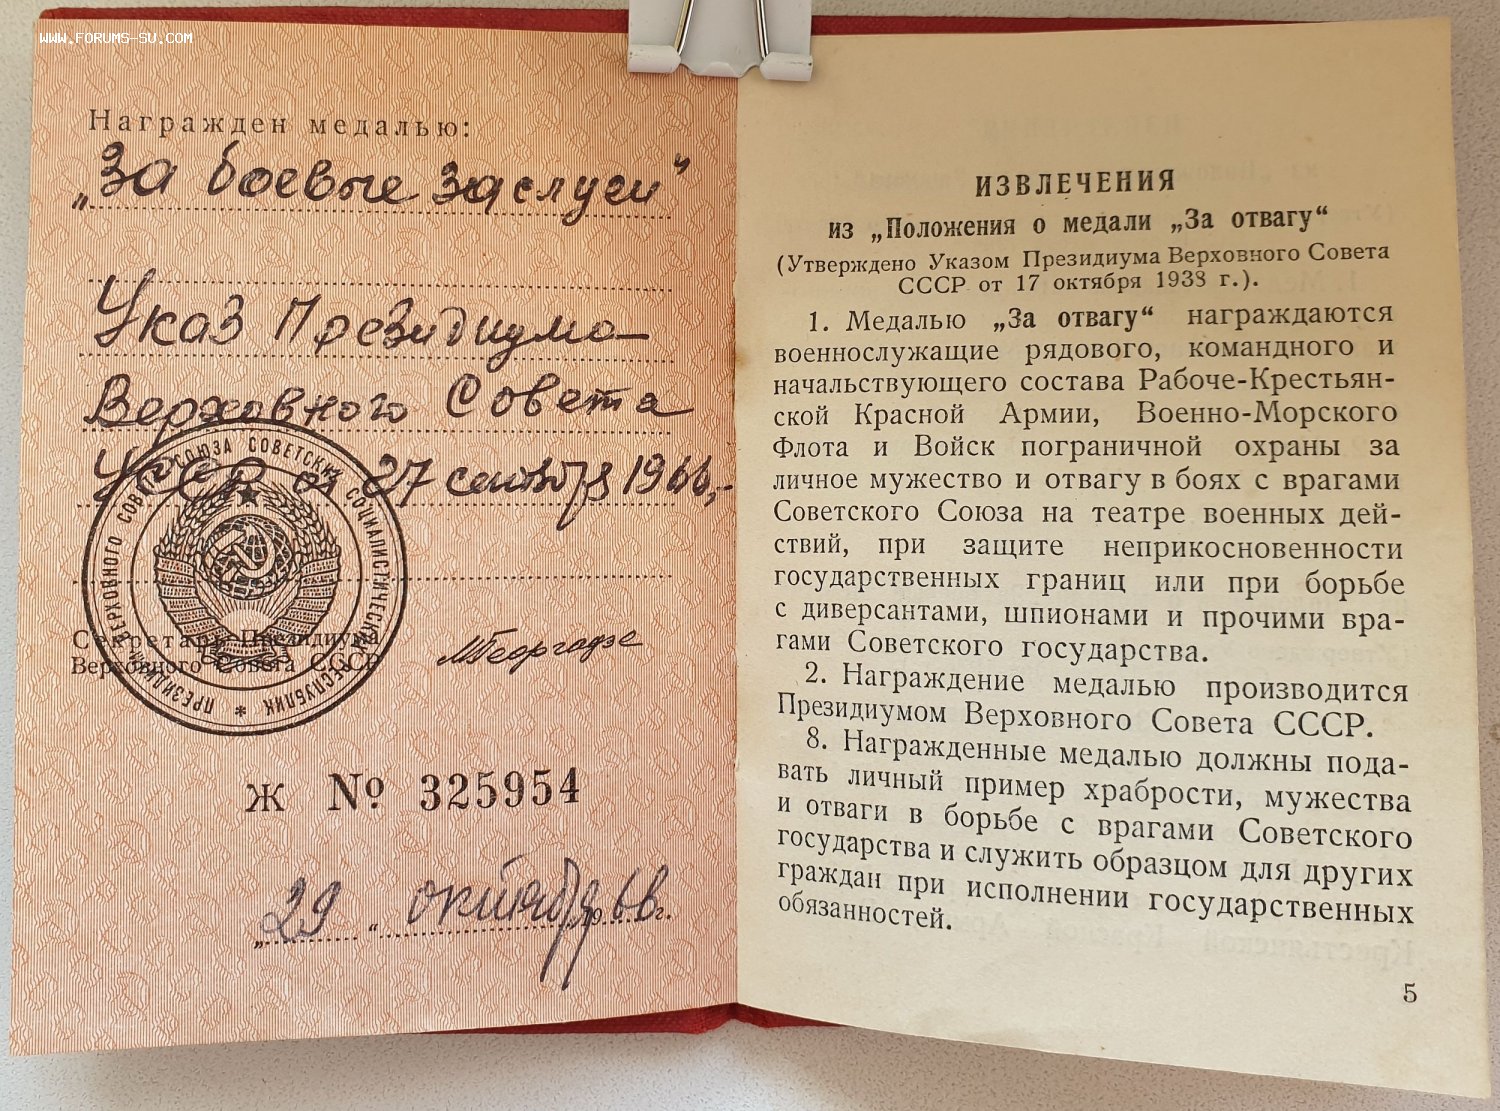 WWW.FORUMS-SU.COM
Награжден медалью:
„За боевые заслуги"
Указ Президиума
Верховного Совета
УССР от 27 сентября 1966
ПРЕЗИДИУМ ВЕРХОВНОГО СОВЕТА СОЮЗА СОВЕТСКИХ СОЦИАЛИСТИЧЕСКИХ РЕСПУБЛИК *
Секретарь Президиума
Верховного Совета СССР
МГеоргадзе
Ж № 325954
„29 “ октября 1966г.
ИЗВЛЕЧЕНИЯ
из „Положения о медали „За отвагу“
(Утверждено Указом Президиума Верховного Совета
СССР от 17 октября 1938 г.).
1. Медалью „За отвагу“ награждаются
военнослужащие рядового, командного и
начальствующего состава Рабоче-Крестьян-
ской Красной Армии, Военно-Морского
Флота и Войск пограничной охраны за
личное мужество и отвагу в боях с врагами
Советского Союза на театре военных дей-
ствий, при защите неприкосновенности
государственных границ или при борьбе
с диверсантами, шпионами и прочими вра-
гами Советского государства.
2. Награждение медалью производится
Президиумом Верховного Совета СССР.
8. Награжденные медалью должны пода-
вать личный пример храбрости, мужества
и отваги в борьбе с врагами Советского
государства и служить образцом для других
граждан при исполнении государственных
обязанностей.
5